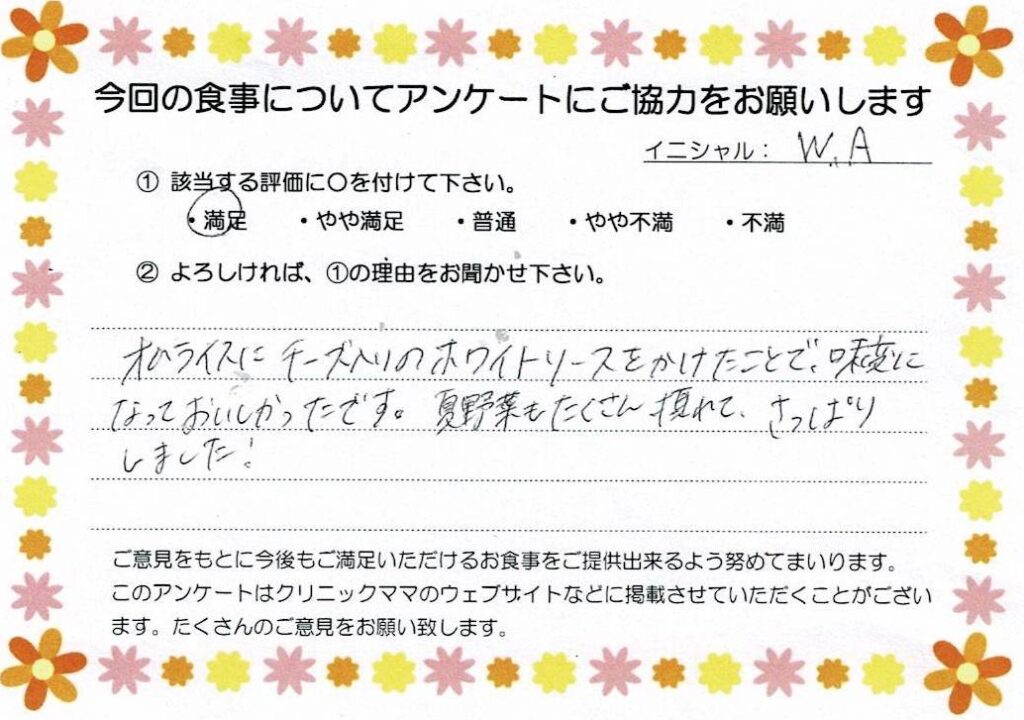 今回の食事についてアンケートにご協力をお願いします
イニシャル： W.A
① 該当する評価に〇を付けて下さい。
・満足 ・やや満足 ・普通 ・やや不満 ・不満
② よろしければ、①の理由をお聞かせ下さい。
オムライスにチーズ入りのホワイトソースをかけたことで、味変に
なっておいしかったです。夏野菜もたくさん摂れて、さっぱり
しました!
ご意見をもとに今後もご満足いただけるお食事をご提供出来るよう努めてまいります。
このアンケートはクリニックママのウェブサイトなどに掲載させていただくことがござい
ます。たくさんのご意見をお願い致します。